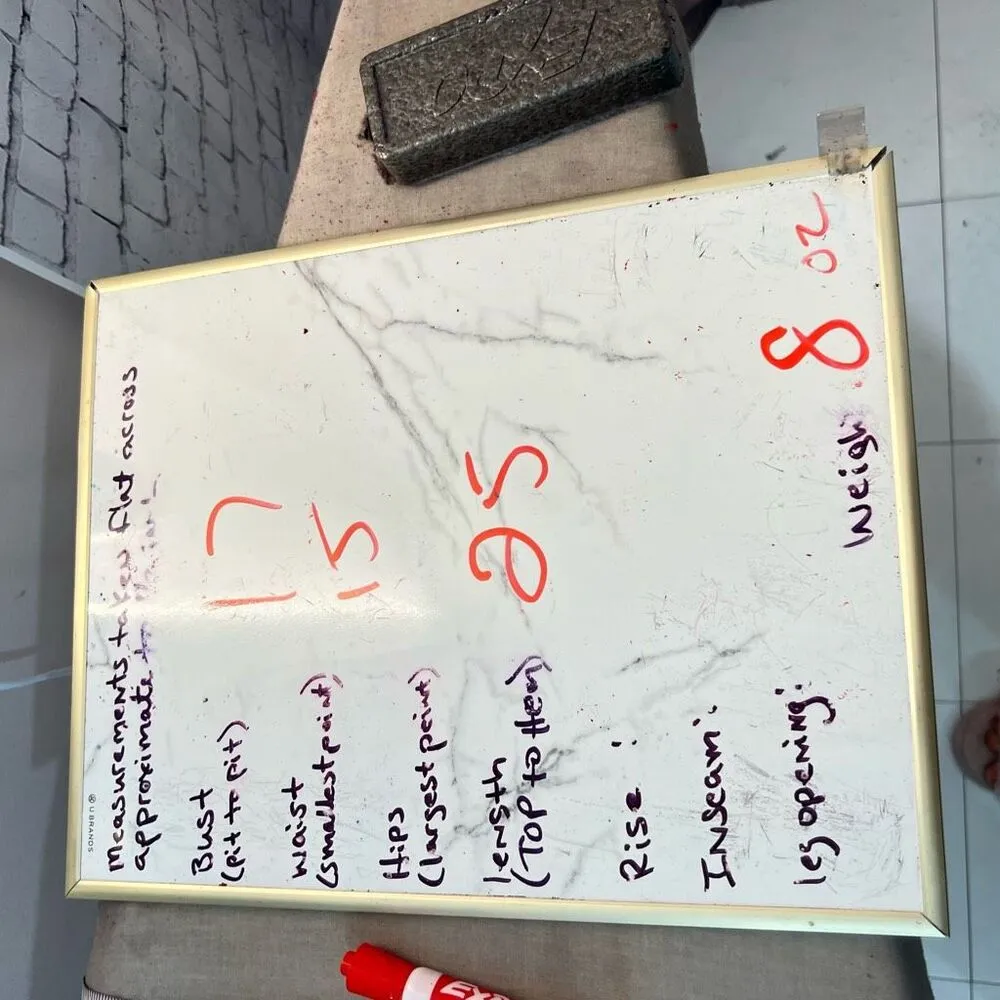 Measurements taken flat across
approximate to
Bust 17
(pit to pit)
Waist 15
(smallest point)
Hips
(largest point)
length 25
(TOP to Hem)
Rise:
Inseam:
leg opening:
Weigh 8 oz
UBRANDS
EXPO
EXP